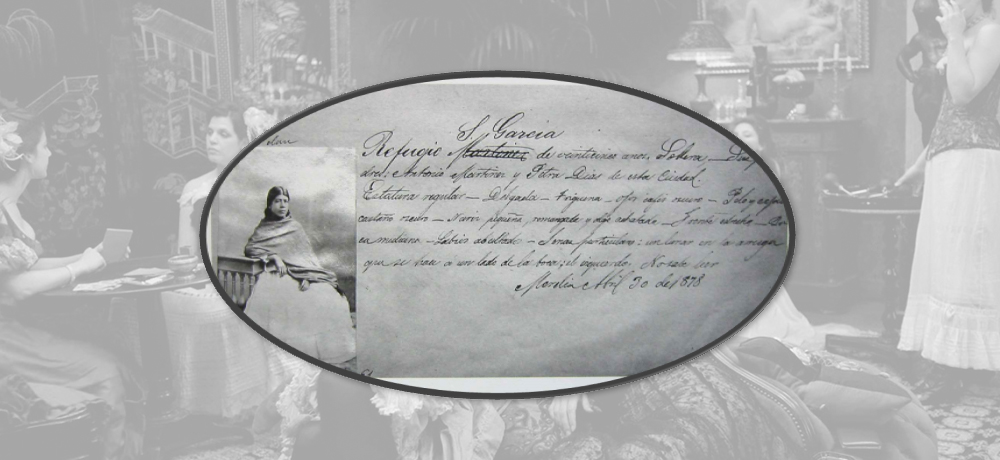 S. Garcia
Refugio Martinez de veintitres anos. Soltera
dres: Antonio Martinez y Petra Dias de esta Ciudad.
Estatura regular — Delgada — Triguena — Ojos cafés oscuro — Pelo y
castaño oscuro — Nariz pequeña, remangada y — Frente estrecha —
ca mediana — Labios — Senas particulares: un lunar en la arruga
que se hace a un lado de la boca; el izquierdo. No sabe
Morelia Abril 30 de 1878